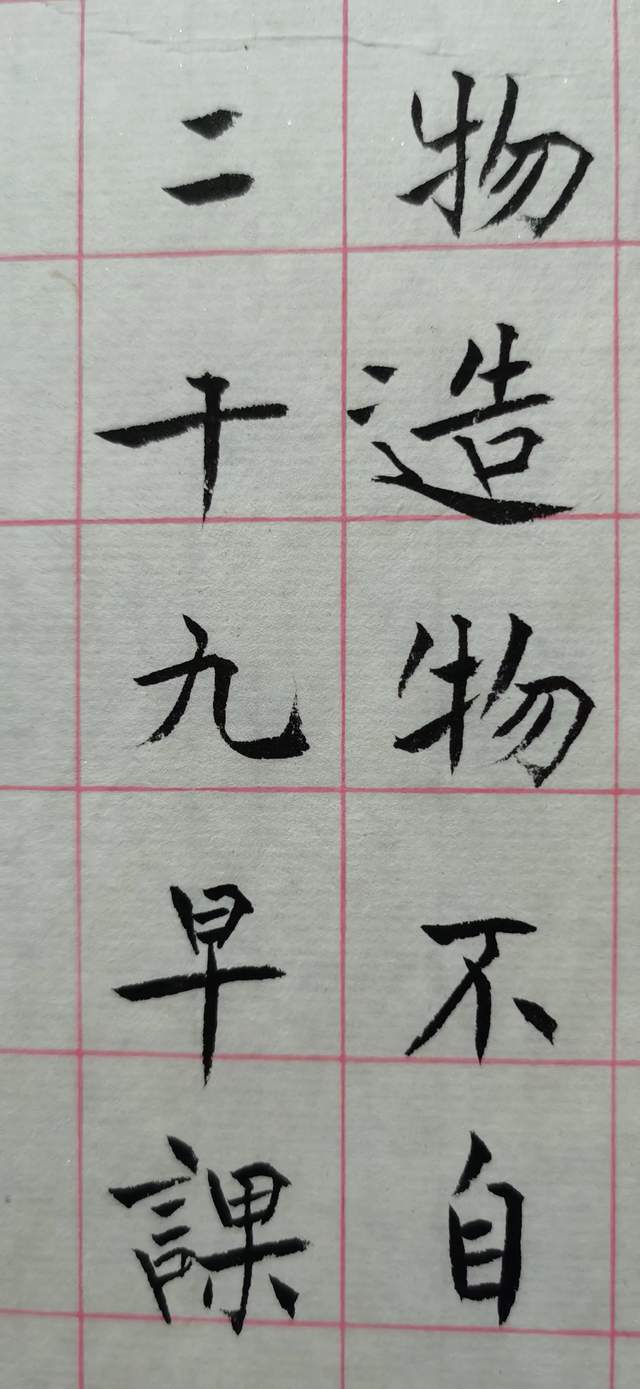 物造物不自
二十九早課